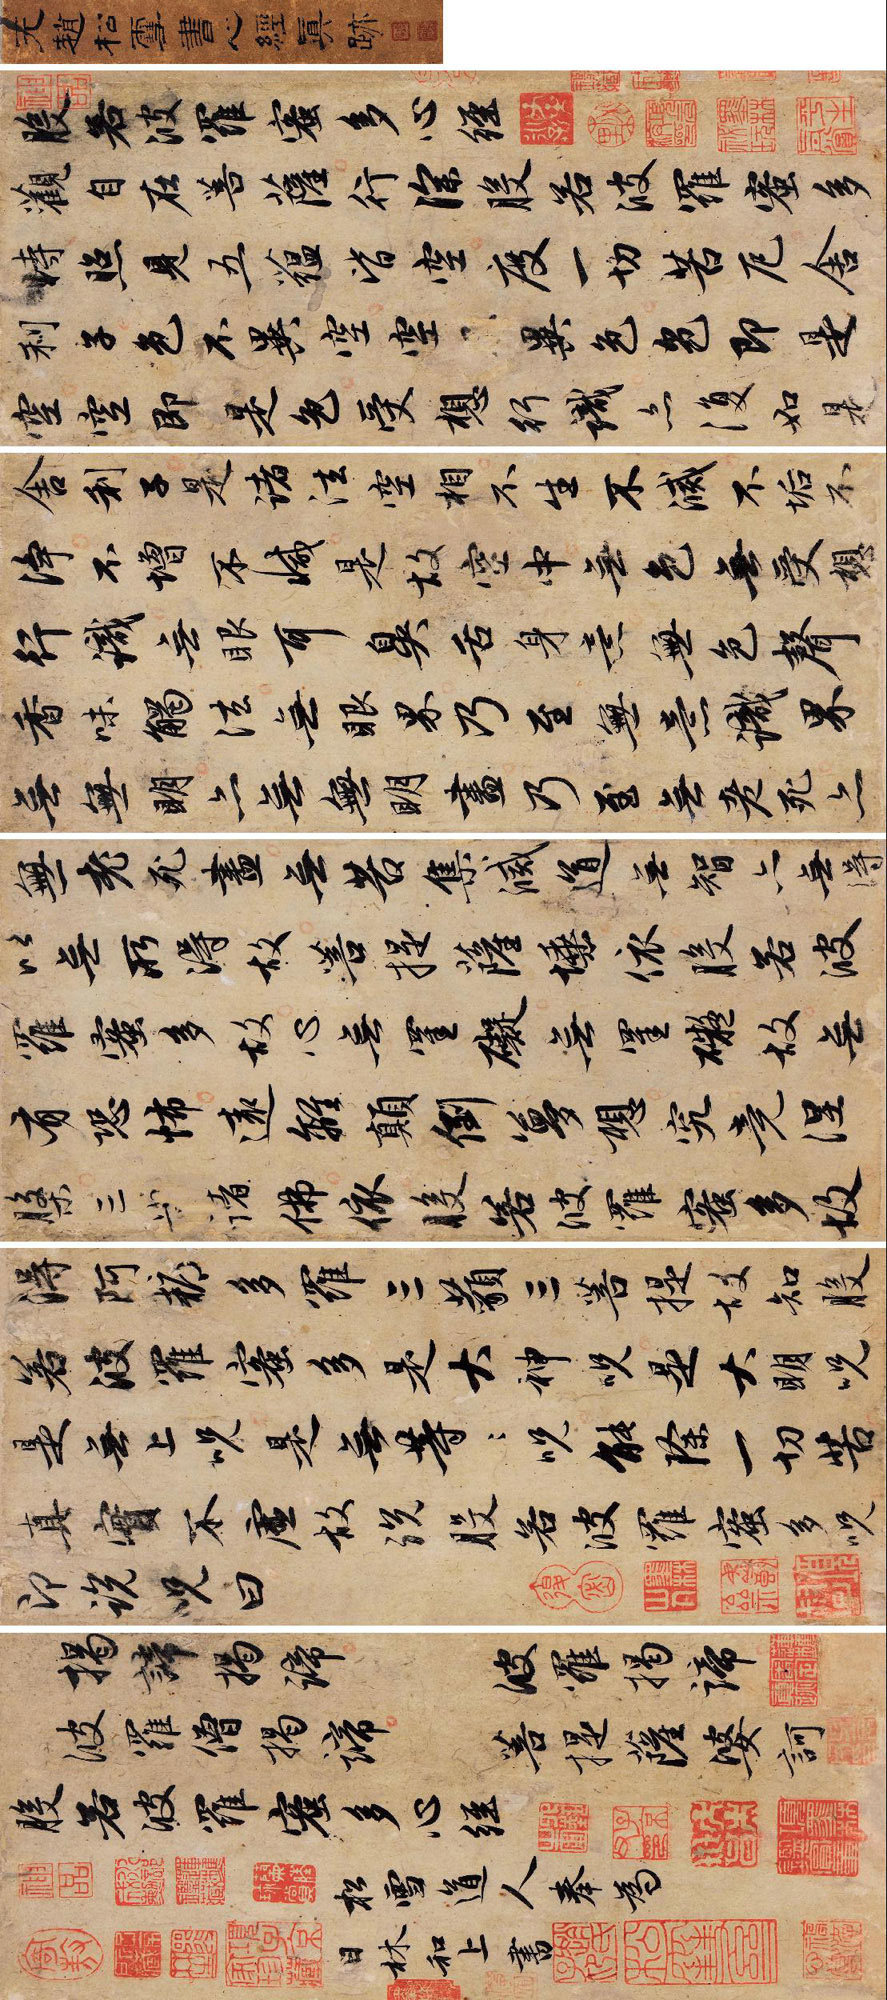 元趙松雪書心經真跡
般若波羅蜜多心經
觀自在菩薩行深般若波羅蜜多
時照見五蘊皆空度一切苦厄舍
利子色不異空空異色色即是
空空即是色受想行識亦復如是
舍利子是諸法空相不生不滅不垢不
淨不增不減是故空中无色无受想
行識无眼耳鼻舌身意無色聲
香味觸法无眼界乃至無意識界
无無明亦无無明盡乃至无老死亦
無老死盡无苦集滅道无智亦无得
以无所得故菩提薩埵依般若波
羅蜜多故心无罣礙无罣礙故无
有恐怖遠離顛倒夢想究竟涅
槃三世諸佛依般若波羅蜜多故
得阿耨多羅三藐三菩提故知般
若波羅蜜多是大神咒是大明咒
是无上咒是无等:咒能除一切苦
真實不虛故說般若波羅蜜多咒
即說咒曰
揭諦揭諦　波羅揭諦
波羅僧揭諦　菩提薩婆訶
般若波羅蜜多心經
松雪道人奉為
日林和上書